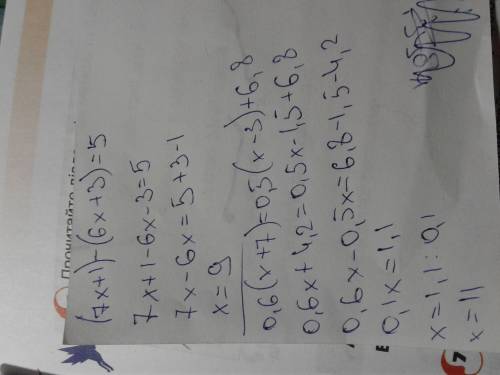 Прочитайте
(7x+1)-(6x+3)=5
7x+1-6x-3=5
7x-6x=5+3-1
x=9
0,6(x+7)=0,5(x-3)+6,8
0,6x+4,2=0,5x-1,5+6,8
0,6x-0,5x=6,8-1,5-4,2
0,1x=1,1
x=1,1:0,1
x=11
7